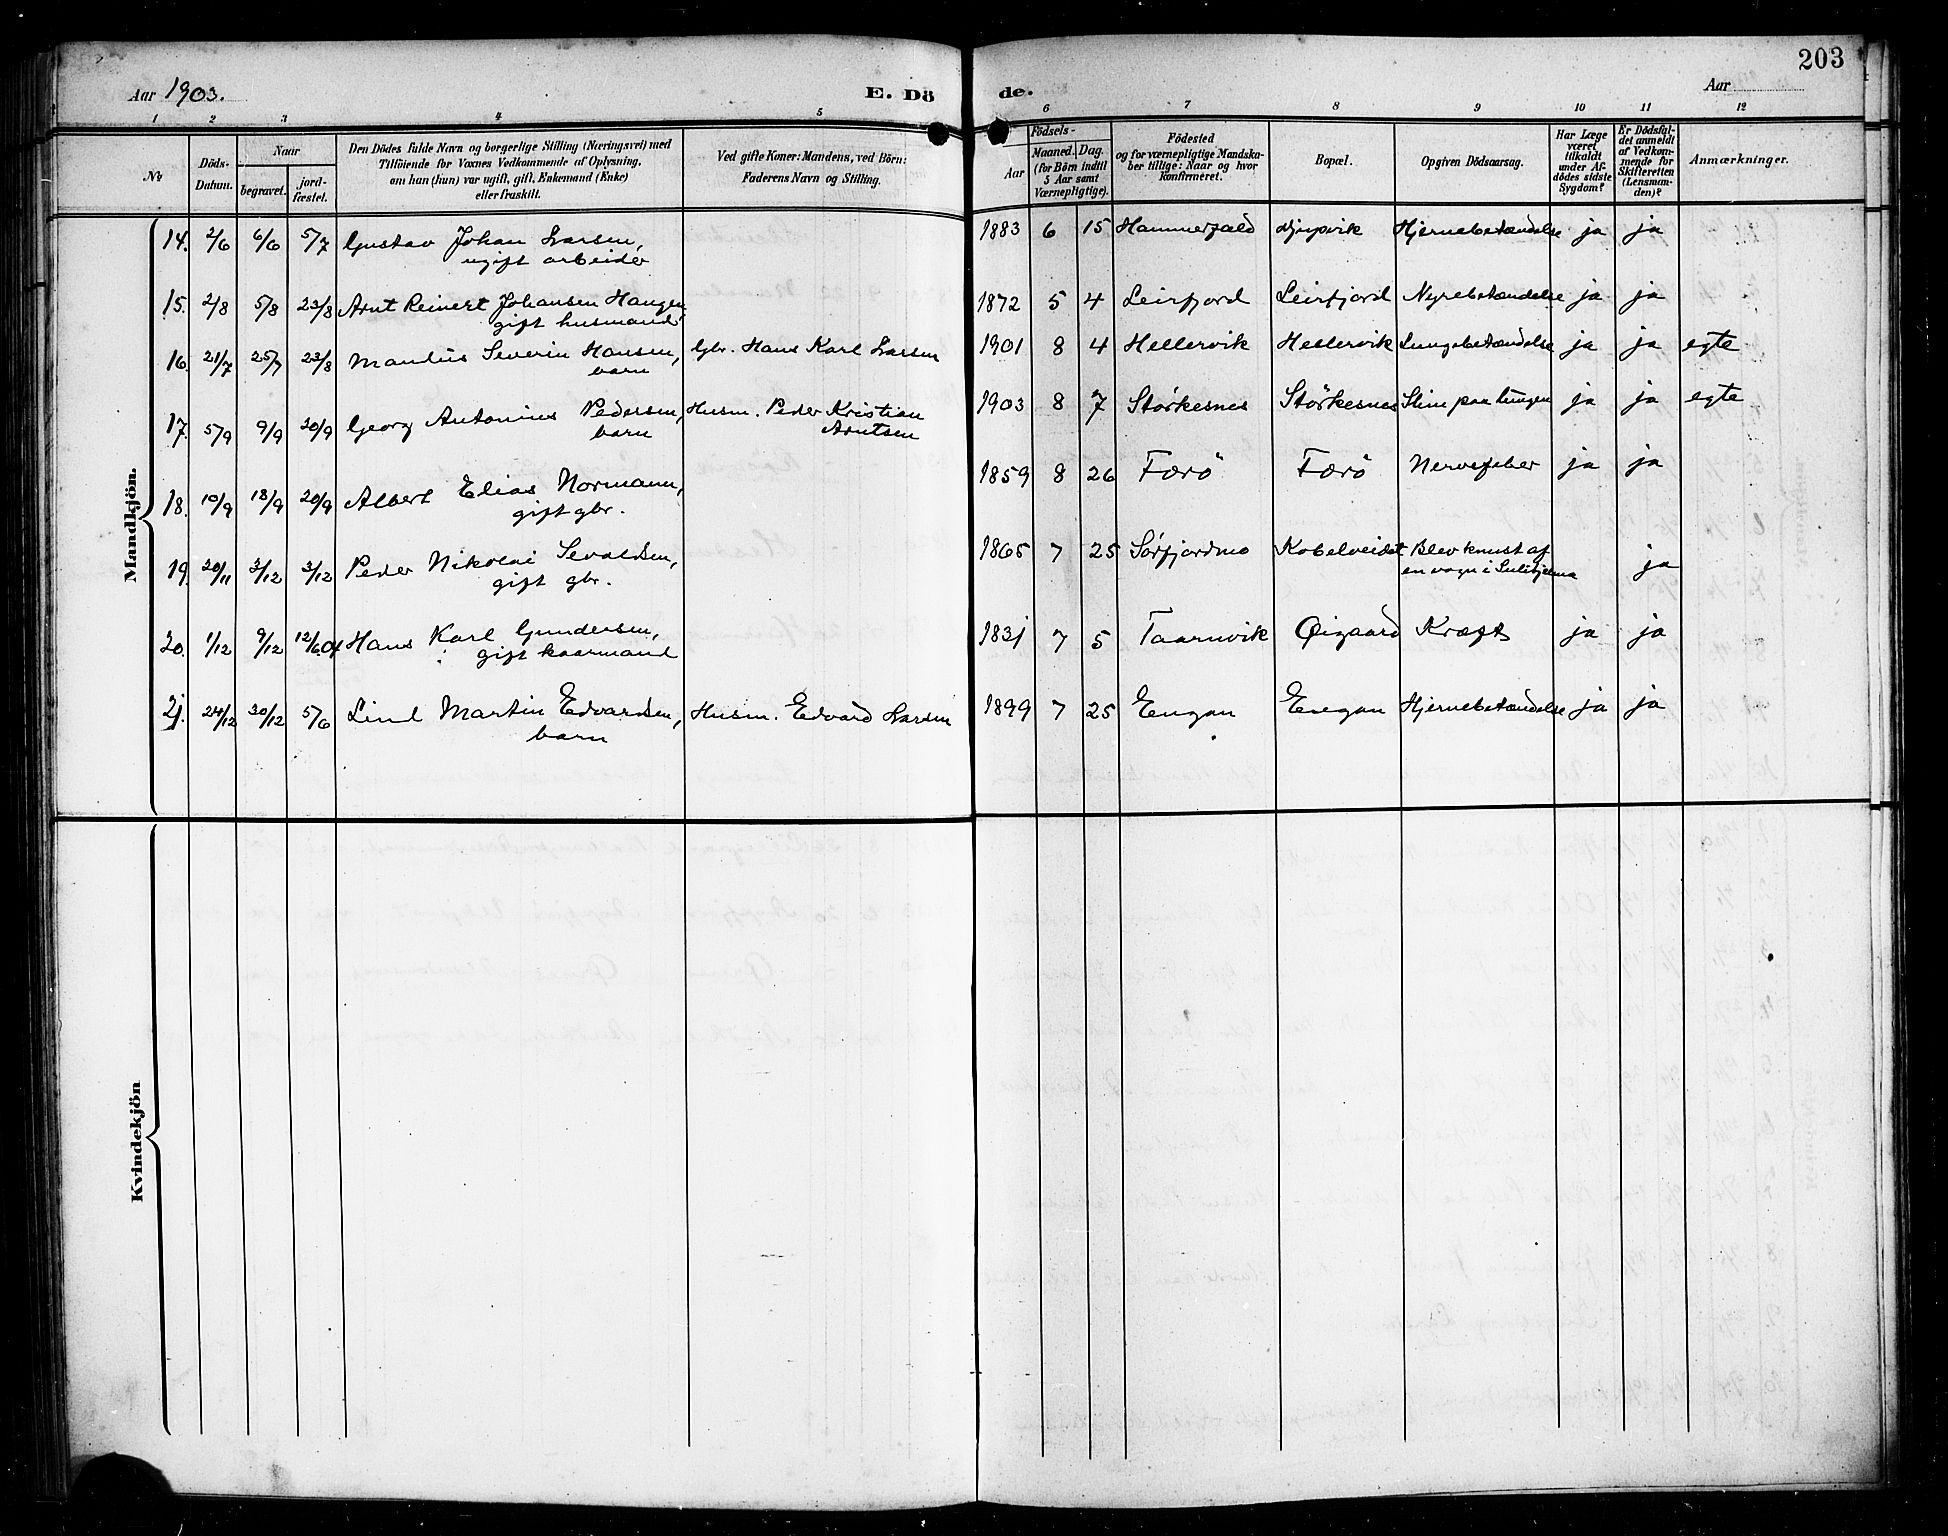 203
Aar 1903.
E. Dö de.
Aar
1 2 3 4 5 6 7 8 9 10 11 12
No
Döds-Datum.
Naar
begravet.
jord-fæstet.
Den Dödes fulde Navn og borgerlige Stilling (Næringsvei) med
Tilföiende for Voxnes Vedkommende af Oplysning,
om han (hun) var ugift, gift, Enkemand (Enke)
eller fraskilt.
Ved gifte Koner: Mandens, ved Börn:
Faderens Navn og Stilling.
Födsels-
Aar
Maaned. Dag.
(for Börn indtil
5 Aar samt
Værnepligtige).
Födested
og for værnepligtige Mandska-
ber tillige: Naar og hvor
konfirmeret.
Bopæl.
Opgiven Dödsaarsag.
Har Læge
været
tilkaldt
under Af-
dödes sidste
Sygdom?
Er Dödsfal-
det anmeldt
af Vedkom-
mende for
Skifteretten
(Lensman-
den)?
Anmærkninger.
Mandkjön.
14. 2/6 6/6 5/7 Gustav Johan Larsen, 1883 6 15 Hammerfald Djupvik Hjernebetændelse ja ja
ugift arbeider
15. 2/8 5/8 23/8 Arnt Reinert Johansen Haugen 1872 5 4 Leirfjord Leirfjord Nyrebetændelse ja ja
gift husmand
16. 21/7 25/7 23/8 Mandus Severin Hansen, Gbr. Hans Karl Larsen 1901 8 4 Hellervik Hellervik Lungebetændelse ja ja egte
barn
17. 5/9 9/9 20/9 Georg Antonius Pedersen, Husm. Peder Kristian 1903 8 7 Störkesnes Störkesnes Slim paa lungen ja ja egte
barn Arntsen
18. 10/9 18/9 20/9 Albert Elias Normann, 1859 8 26 Færö Færö Nervefeber ja ja
gift gbr.
19. 20/11 3/12 3/12 Peder Nikolai Sevaldsen, 1865 7 25 Sörfjordmo Kobelveidet Blev knust af
gift gbr. en vogn i Sulitjelma ja
20. 1/12 9/12 12/6.04 Hans Karl Gundersen, 1831 7 5 Taarnvik Øigaard Kræft ja ja
gift kaarmand
21. 24/12 30/12 5/6 Lind Martin Edvardsen, Husm. Edvard Larsen 1899 7 25 Engan Engan Hjernebetændelse ja ja
barn
Kvindekjön